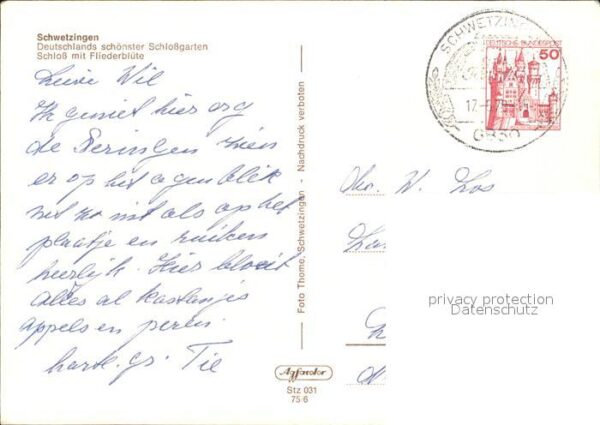 Schwetzingen
Deutschlands schönster Schloßgarten
Schloß mit Fliederblüte
Lieve Wil
Ik geniet hier erg
de Seringen zien
er op het ogenblik
net zo uit als op het
plaatje en ruiken
heerlijk. Hier bloeit
alles al kastanjes
appels en peren.
hartl. gr. Tie
Foto Thome, Schwetzingen - Nachdruck verboten
Agfacolor
Stz 031
75 6
SCHWETZINGEN
DEUTSCHE BUNDESPOST
50
17.
6830
W. Los
privacy protection
Datenschutz